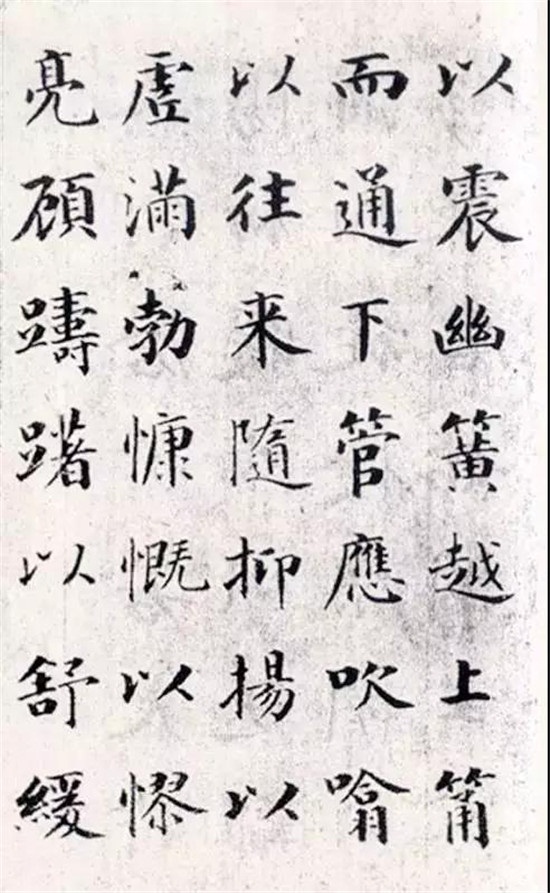 以震幽簧越上筩
而通下管應吹噏
以往来隨抑揚以
虚滿勃慷慨以憀
亮顧躊躇以舒緩